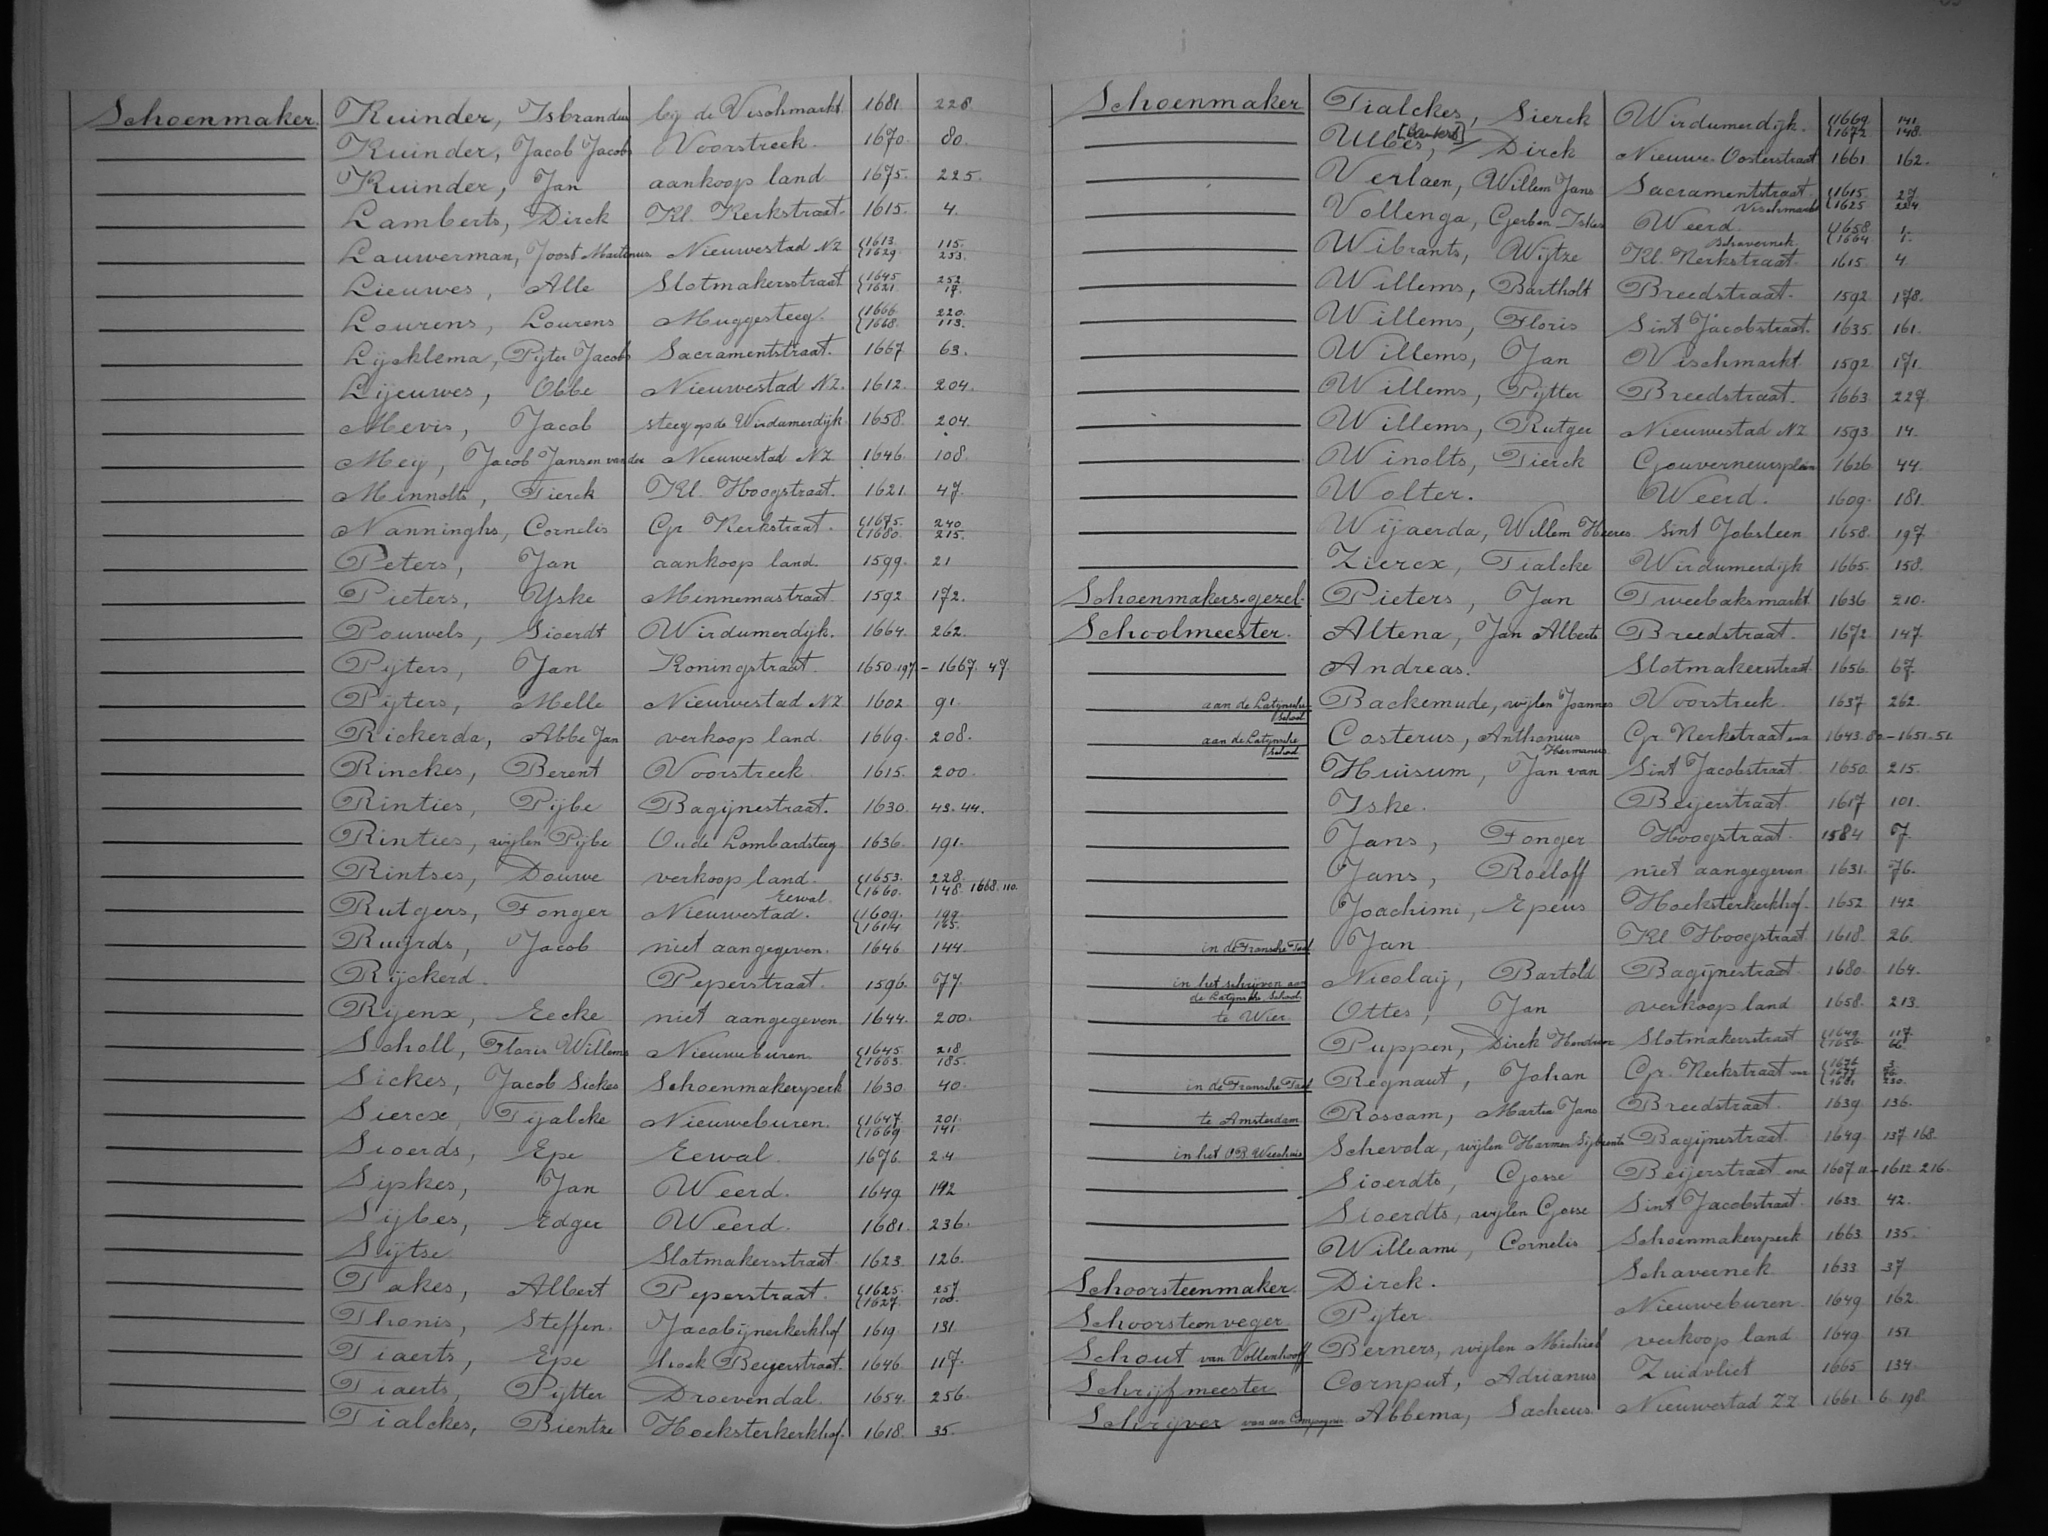 Schoenmaker. Kuinder, Isbrandus bij de Vischmarkt 1681. 228.
Kuinder, Jacob Jacobs Voorstreek. 1670. 80.
Kuinder, Jan aankoop land 1675. 225.
Lamberts, Dirck Kl. Kerkstraat. 1615. 4.
Lauwerman, Joost Martinus Nieuwestad NZ {1613. 1629. 115. 253.
Lieuwes, Alle Slotmakersstraat {1645 1621. 252. 17.
Lourens, Lourens Muggesteeg. {1666 1668. 220. 113.
Lijcklema, Pijter Jacobs Sacramentstraat. 1667 63.
Lijeuwes, Obbe Nieuwestad NZ. 1612. 204.
Mevis, Jacob steeg op de Wirdumerdijk 1658. 204.
Meij, Jacob Jansen van der Nieuwestad NZ. 1646. 108.
Minnolts, Tierck Kl. Hoogstraat. 1621. 47.
Nanninghs, Cornelis Gr. Kerkstraat. {1675. 1680. 240. 215.
Peters, Jan aankoop land. 1599. 21
Pieters, Yske Minnemastraat. 1592 172.
Pouwels, Sioerdt Wirdumerdijk. 1664. 262.
Pijters, Jan Koningstraat. 1650. 197. - 1667. 47.
Pijters, Melle Nieuwestad NZ 1602. 91.
Rickerda, Abbe Jan verkoop land. 1669. 208.
Rinckes, Berent Voorstreek. 1615. 200.
Rinties, Pijbe Bagijnestraat. 1630. 43. 44.
Rinties, wijlen Pijbe Oude Lombardsteeg 1636. 191.
Rintses, Douwe verkoop land. {1653. 1660. 228. 148. 1668. 110.
Rutgers, Fonger Nieuwestad. Eewal. {1609. 1614 199. 165.
Ruijrds, Jacob niet aangegeven. 1646. 144.
Rijckerd. Peperstraat. 1596. 77.
Rijenx, Eecke niet aangegeven. 1644. 200.
Scholl, Floris Willems Nieuweburen. {1645. 1663. 218 185.
Sickes, Jacob Sickes Schoenmakersperk 1630. 40.
Siercx, Tijalcke Nieuweburen. {1647 1669 201. 141.
Sioerds, Epe Eewal. 1676. 24
Sipkes, Jan Weerd. 1649. 192
Sijbes, Edger Weerd. 1681. 236.
Sijtse Slotmakersstraat. 1623. 126.
Takes, Albert Peperstraat. {1625. 1627. 257. 100.
Thonis, Steffen. Jacobijnerkerkhof 1619. 131.
Tiaerts, Epe hoek Beijerstraat. 1646. 117.
Tiaerts, Pijtter Droevendal. 1654. 256.
Tialckes, Bientze Hoeksterkerkhof. 1618. 35.
Schoenmaker Tialckes, Sierck Wirdumerdijk. {1669 1672 141. 148.
Ulbes, Dirck Nieuwe Oosterstraat 1661 162.
Verlaen, Willem Jans Sacramentstraat. Vischmarkt {1615. 1625 27. 224
Vollenga, Gerben Iskes Weerd. {1658. 1664. 1. 1.
Wibrants, Wijtze Kl. Kerkstraat. Schavernek. 1615. 4.
Willems, Bartholt Breedstraat. 1592 178.
Willems, Floris Sint Jacobstraat. 1635. 161.
Willems, Jan Vischmarkt. 1592. 171.
Willems, Pijtter Breedstraat. 1663. 227.
Willems, Rutger Nieuwestad NZ 1593 14.
Winolts, Tierck Gouverneursplein 1626 44.
Wolter. Weerd. 1609. 181.
Wijaerda, Willem Heeres Sint Jobsleen 1658. 197
Ziercx, Tialcke Wirdumerdijk 1665. 158.
Schoenmakers-gezel. Pieters, Jan Tweebaksmarkt 1636 210.
Schoolmeester. Altena, Jan Alberts Breedstraat. 1672. 147.
Andreas. Slotmakersstraat. 1656. 67.
aan de Latijnsche School Backemude, wijlen Joannes Voorstreek. 1637 262.
aan de Latijnsche School Costerus, Anthonius Hermanus. Gr. Kerkstraat enz 1643. 80. - 1651. 51.
Huisum, Jan van Sint Jacobstraat. 1650. 215.
Iske. Beijerstraat. 1617 101.
Jans, Fonger Hoogstraat. 1584 7.
Jans, Roeloff niet aangegeven 1631. 76.
Joachimi, Epeus Hoeksterkerkhof. 1652 142
in de Fransche Taal Jan Kl. Hoogstraat. 1618. 26.
in het schrijven aan de Latijnsche School. Nicolaij, Bartold Bagijnestraat. 1680. 164.
te Wier. Ottes, Jan verkoop land 1658. 213.
Puppen, Dirck Slotmakersstraat {1649 1656. 117. 66.
in de Fransche Taal Regnaut, Johan Gr. Kerkstraat enz
te Amsterdam. Roscam, Martin Jans Breedstraat. 1639. 136.
in het O.B. Weeshuis Schevola, wijlen Harmen Sijbrents Bagijnestraat. 1649. 137. 168.
Sioerdts, Gosse Beijerstraat enz 1607. 11. - 1612. 216.
Sioerdts, wijlen Gosse Sint Jacobstraat. 1633. 42.
Willeami, Cornelis Schoenmakersperk 1663. 135.
Schoorsteenmaker. Dirck. Schavernek. 1633 37
Schoorsteenveger Pijter. Nieuweburen 1649. 162.
Schout van Vollenhooff Berners, wijlen Michiel verkoop land 1649 151.
Schrijfmeester Cornput, Adrianus Zuidvliet 1665 134.
Schrijver van een Compagnie Abbema, Sacheus. Nieuwestad ZZ 1661. 6. 198.